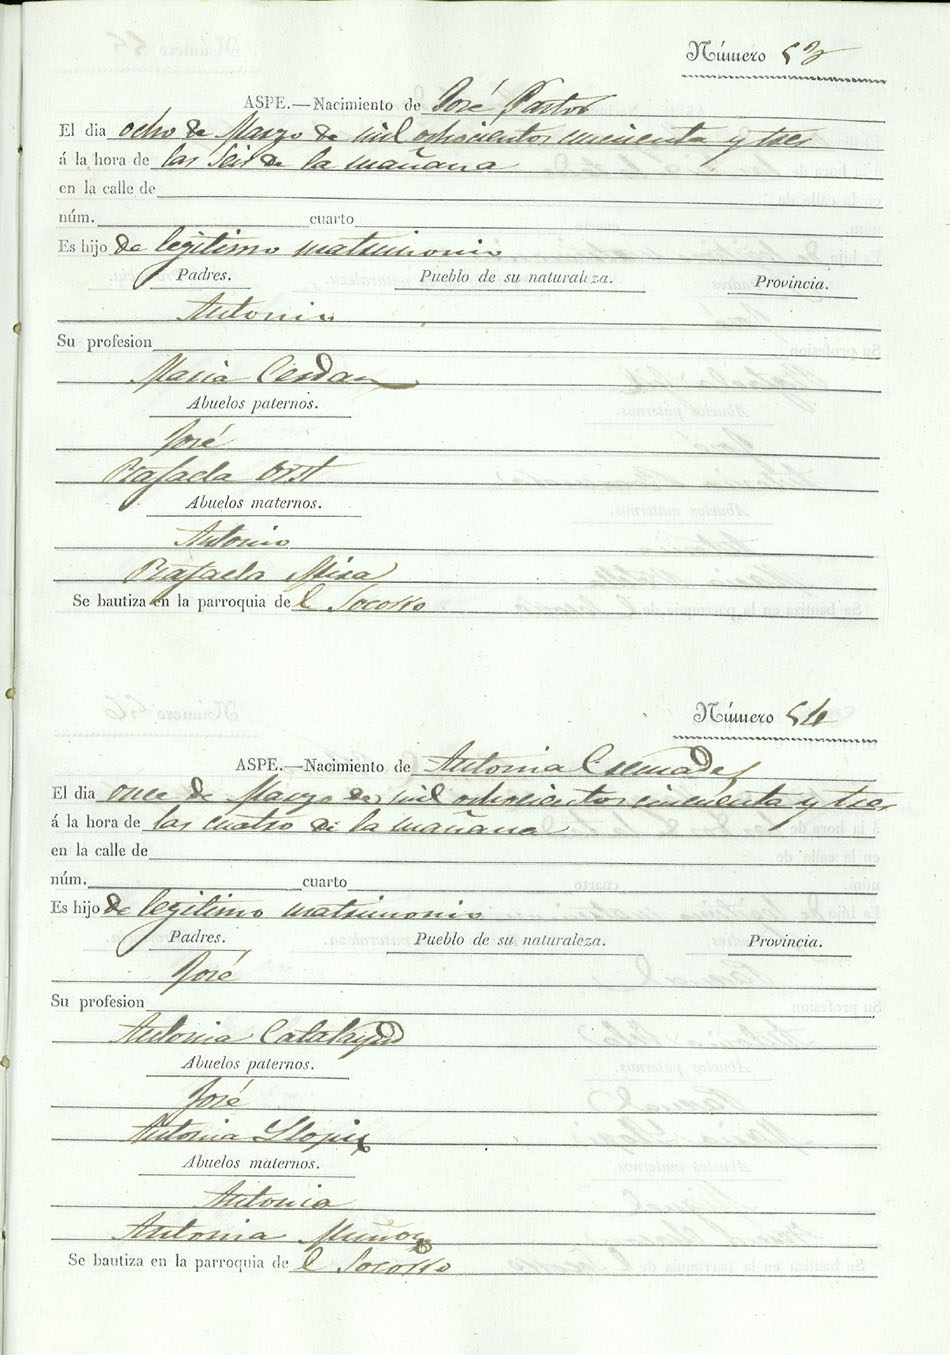 Número 53
ASPE.—Nacimiento de José Pastor
El dia ocho de Marzo de mil ochocientos cincuenta y tres
á la hora de las seis de la mañana
en la calle de
núm. cuarto
Es hijo de legitimo matrimonio
Padres. Pueblo de su naturaleza. Provincia.
Antonio
Su profesion
Maria Cerdan
Abuelos paternos.
José
Rafaela
Abuelos maternos.
Antonio
Rafaela Mira
Se bautiza en la parroquia de l Socorro
Número 54
ASPE.—Nacimiento de Antonia Cremades
El dia once de Marzo de mil ochocientos cincuenta y tres
á la hora de las cuatro de la mañana
en la calle de
núm. cuarto
Es hijo de legitimo matrimonio
Padres. Pueblo de su naturaleza. Provincia.
José
Su profesion
Antonia Calatayud
Abuelos paternos.
José
Antonia Llopis
Abuelos maternos.
Antonia
Antonia Muñoz
Se bautiza en la parroquia de l Socorro